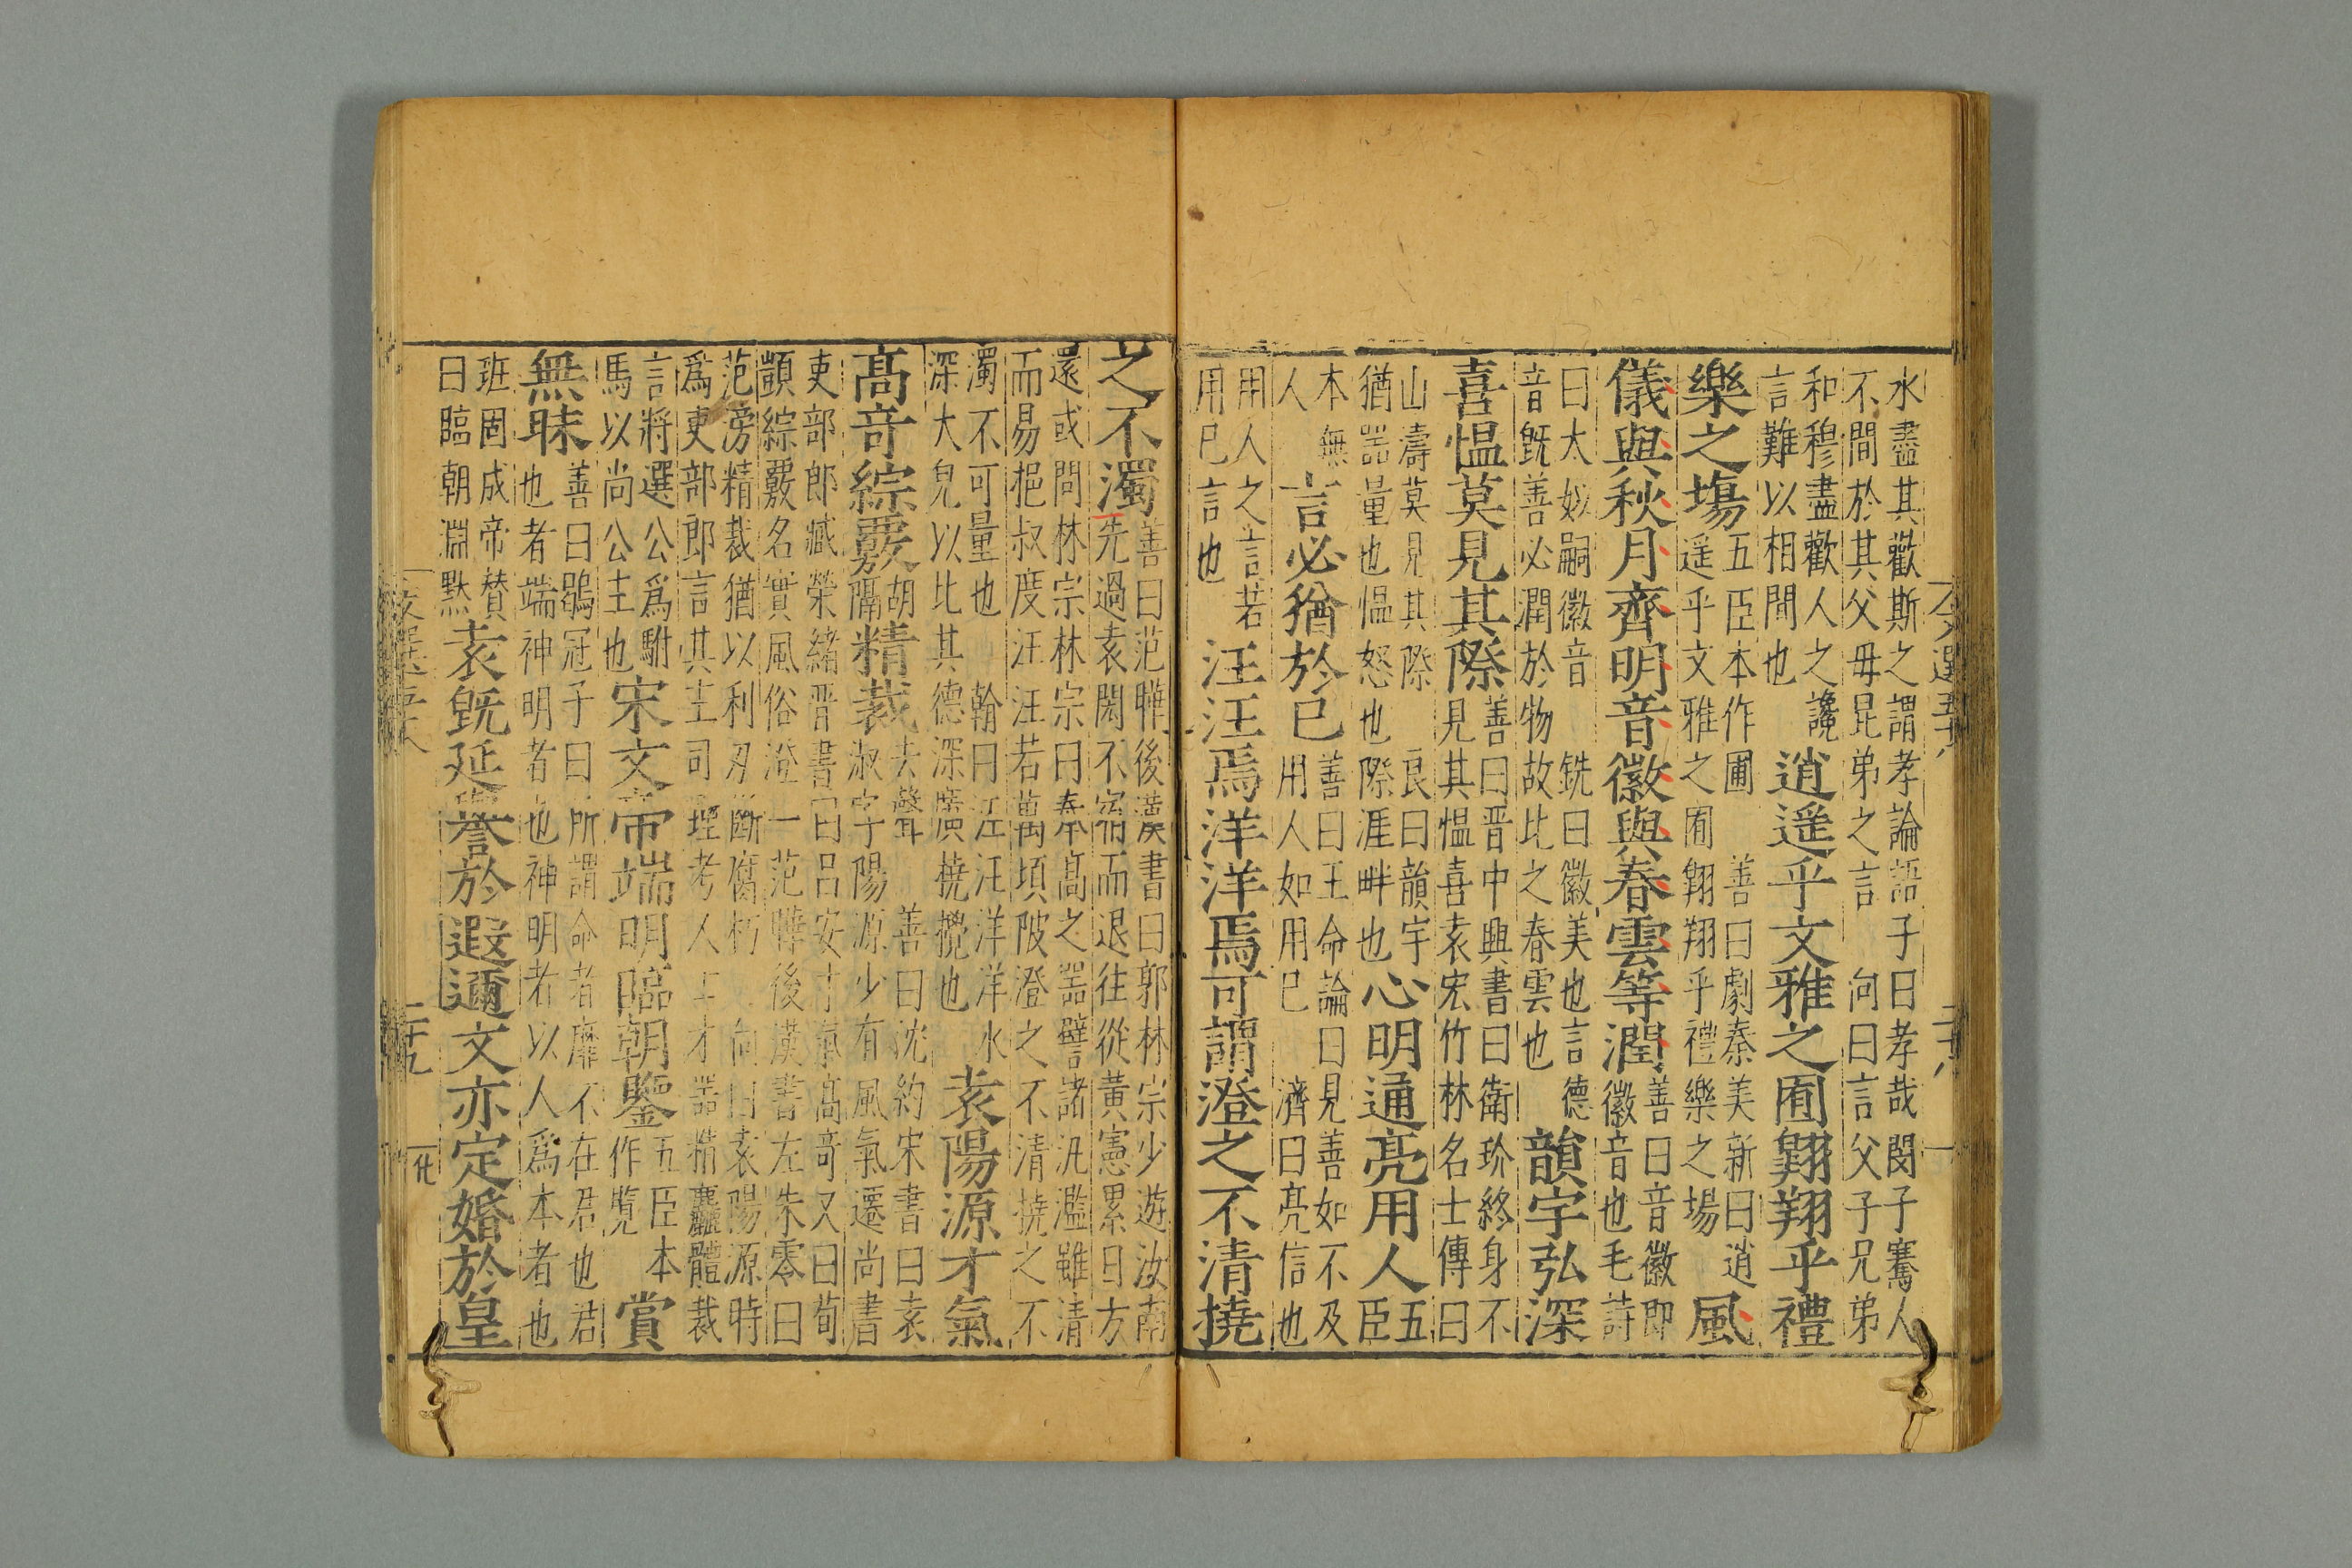 水盡其歡斯之謂孝論語子曰孝哉閔子騫人
不間於其父母昆弟之言 向曰言父子兄弟
和穆盡歡人之讒
言難以相間也
逍遥乎文雅之囿翱翔乎禮
樂之塲
五臣本作圃 善曰劇秦美新曰逍
遥乎文雅之囿翱翔乎禮樂之場
風
儀與秋月齊明音徽與春雲等潤
善曰音徽即
徽音也毛詩
曰太姒嗣徽音 銑曰徽美也言德
音旣善必潤於物故此之春雲也
韻宇弘深
喜愠莫見其際
善曰晋中興書曰衛玠終身不
見其愠喜袁宏竹林名士傳曰
山濤莫見其際 良曰韻宇
猶噐量也愠怒也際涯畔也
心明通亮用人
五
臣
本無
人
言必猶於已
善曰王命論曰見善如不及
用人如用已 濟曰亮信也
用人之言若
用已言也
汪汪焉洋洋焉可謂澄之不清撓
之不濁
善曰范曄後漢書曰郭林宗少遊汝南
先過袁閎不宿而退往從黃憲累日方
還或問林宗林宗曰奉高之噐譬諸汎濫雖清
而易挹叔度汪汪若萬頃陂澄之不清撓之不
濁不可量也 翰曰汪汪洋洋水
深大皃以比其德深廣撓攪也
袁陽源才氣
髙竒綜覈
胡
隔
精裁
去聲 善曰沈約宋書曰袁
淑字陽源少有風氣遷尚書
吏部郎臧榮緒晋書曰呂安才氣髙竒又曰荀
顗綜覈名實風俗澄一范曄後漢書左朱零曰
范滂精裁猶以利刃斷腐朽 向曰袁陽源時
爲吏部郎言其主司理考人士才噐精麤體裁
言將選公爲駙
馬以尚公主也
宋文帝端明臨朝鑒
五臣本
作覽
賞
無昧
善曰鶡冠子曰所謂命者靡不在君也君
也者端神明者也神明者以人爲本者也
班固成帝賛
曰臨朝淵黙
袁旣延譽於遐邇文亦定婚於皇